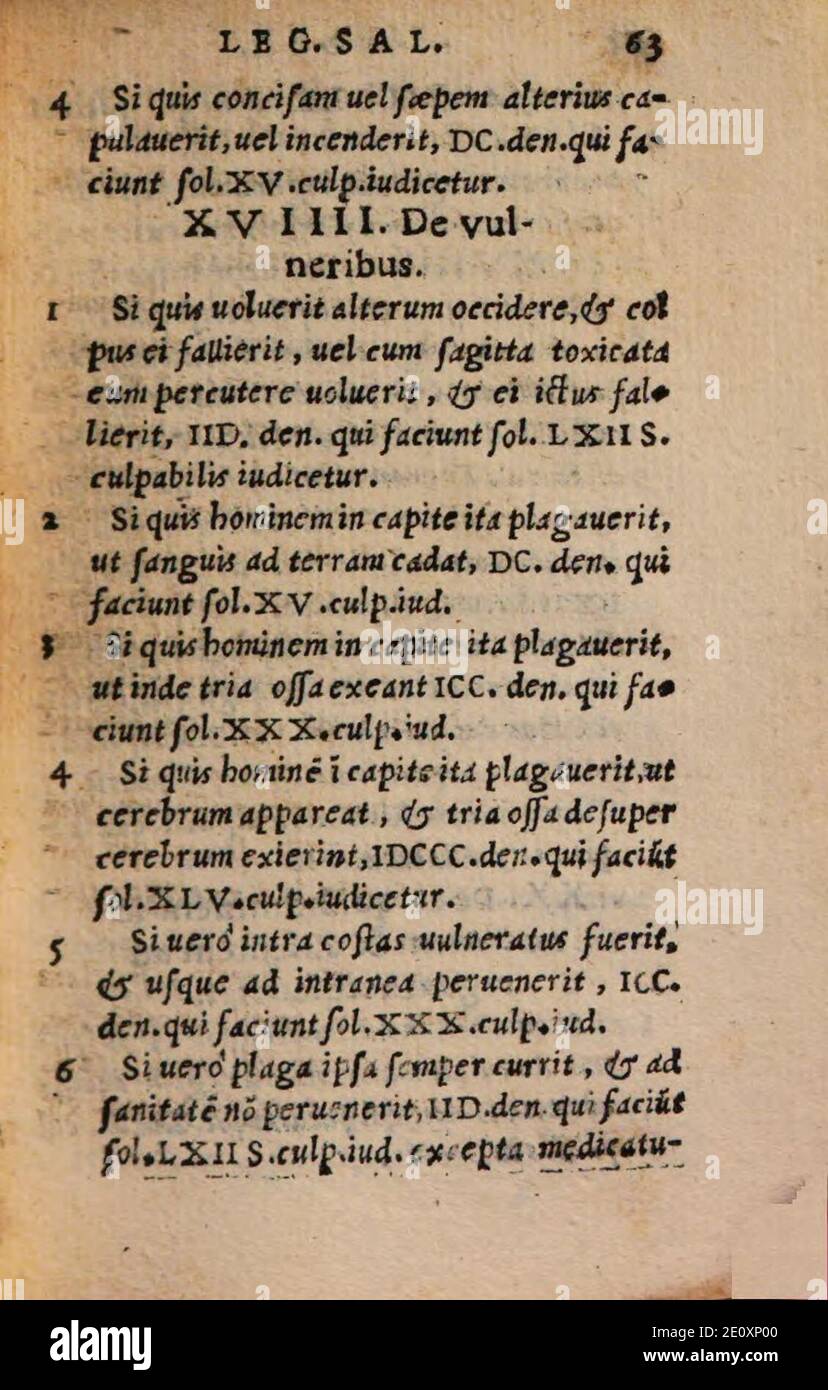 LEG. SAL. 63
4 Si quis concisam uel sæpem alterius ca-
pulauerit, uel incenderit, DC. den. qui fa-
ciunt sol. XV. culp. iudicetur.
XVIIII. De vul-
neribus.
1 Si quis uoluerit alterum occidere, & col
pus ei fallierit, uel cum sagitta toxicata
eum percutere uoluerit, & ei ictus fal-
lierit, IID. den. qui faciunt sol. LXII S.
culpabilis iudicetur.
2 Si quis hominem in capite ita plagauerit,
ut sanguis ad terram cadat, DC. den. qui
faciunt sol. XV. culp. iud.
3 Si quis hominem in capite ita plagauerit,
ut inde tria ossa exeant ICC. den. qui fa-
ciunt sol. XXX. culp. iud.
4 Si quis hominē ī capite ita plagauerit, ut
cerebrum appareat, & tria ossa desuper
cerebrum exierint, IDCCC. den. qui faciūt
sol. XLV. culp. iudicetur.
5 Si uerò intra costas uulneratus fuerit,
& usque ad intranea peruenerit, ICC.
den. qui faciunt sol. XXX. culp. iud.
6 Si uerò plaga ipsa semper currit, & ad
sanitatē nō peruenerit, IID. den. qui faciūt
sol. LXII S. culp. iud. excepta medicatu-
alamy
Image ID: 2E0XP00
www.alamy.com